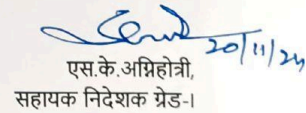 20/11/24
एस.के.अग्निहोत्री,
सहायक निदेशक ग्रेड-I